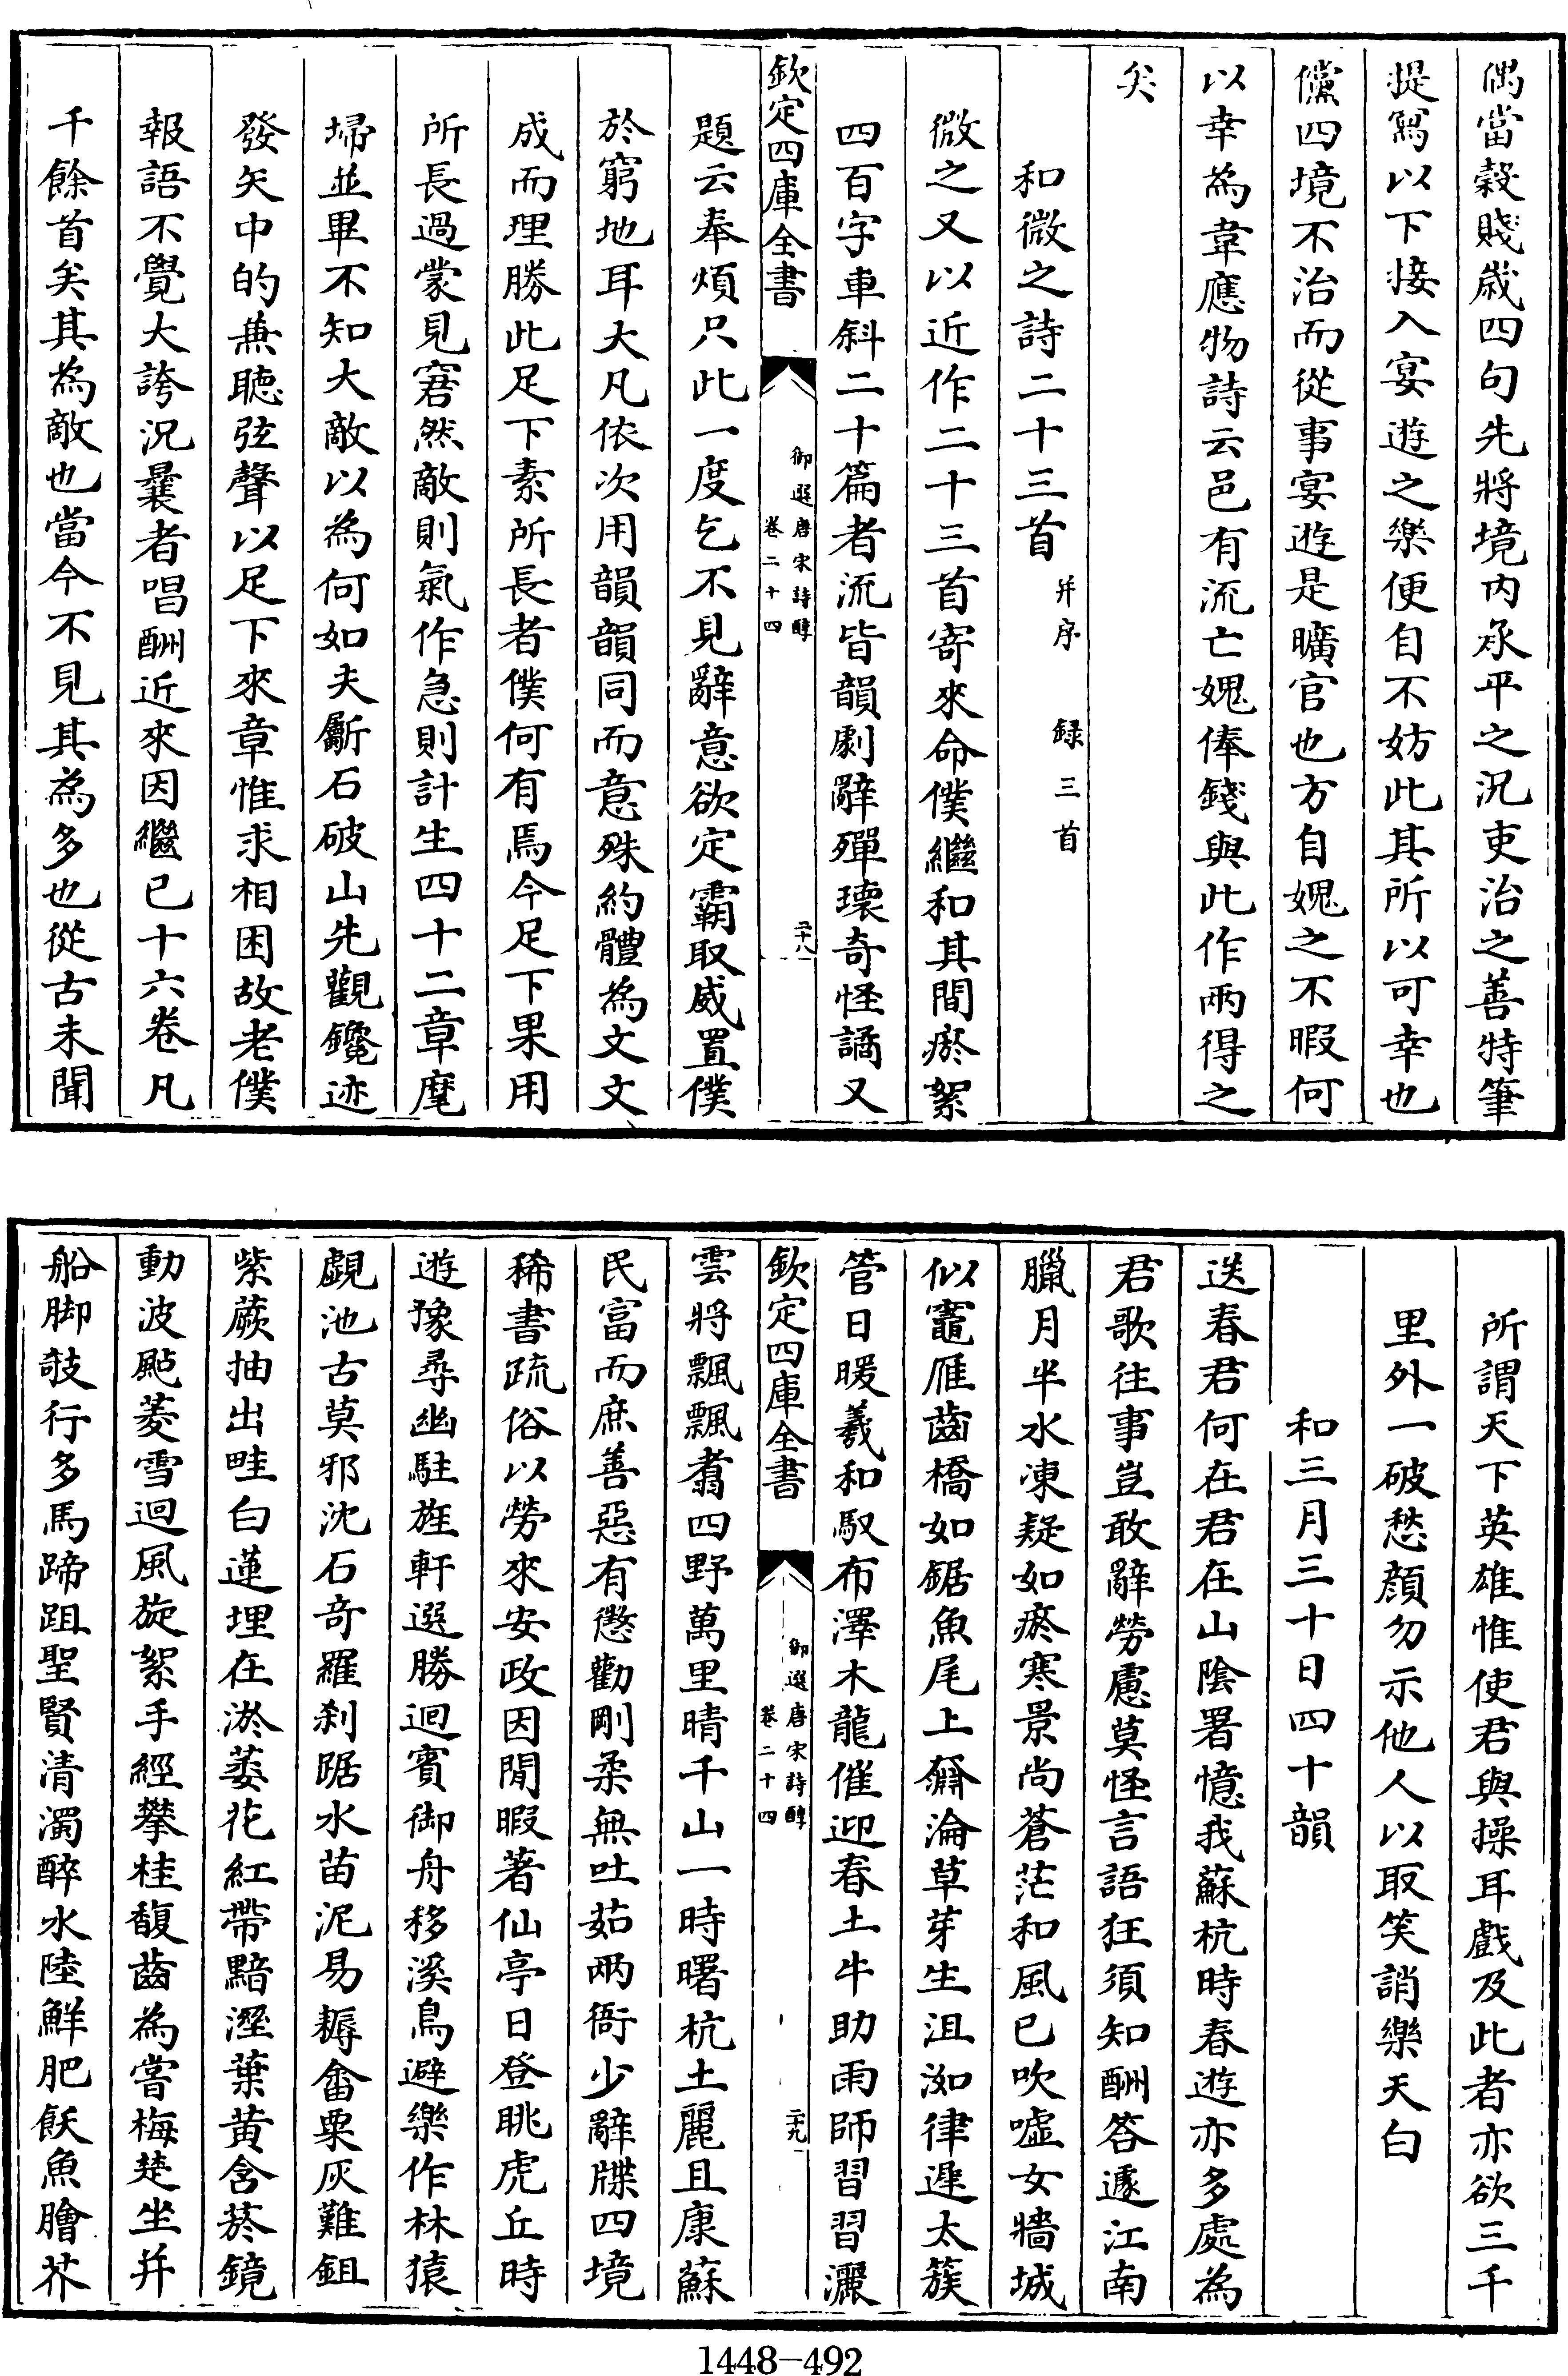 偶當穀賤歲四句先將境内承平之況吏治之善特筆
提寫以下接入宴遊之樂便自不妨此其所以可幸也
儻四境不治而從事宴遊是曠官也方自媿之不暇何
以幸為韋應物詩云邑有流亡媿俸錢與此作兩得之
矣
和微之詩二十三首 并序 録三首
微之又以近作二十三首寄來命僕繼和其間瘀絮
四百字車斜二十篇者流皆韻劇辭殫瓌奇怪譎又
欽定四庫全書
御選唐宋詩醇
卷二十四
二十八
題云奉煩只此一度乞不見辭意欲定霸取威置僕
於窮地耳大凡依次用韻韻同而意殊約體為文文
成而理勝此足下素所長者僕何有焉今足下果用
所長過蒙見窘然敵則氣作急則計生四十二章麾
埽並畢不知大敵以為何如夫斸石破山先觀鑱迹
發矢中的兼聽弦聲以足下來章惟求相困故老僕
報語不覺大誇況曩者唱酬近來因繼已十六卷凡
千餘首矣其為敵也當今不見其為多也從古未聞
所謂天下英雄惟使君與操耳戲及此者亦欲三千
里外一破愁顔勿示他人以取笑誚樂天白
和三月三十日四十韻
送春君何在君在山陰署憶我蘇杭時春遊亦多處為
君歌往事豈敢辭勞慮莫怪言語狂須知酬答遽江南
臘月半水凍凝如瘀寒景尚蒼茫和風已吹噓女牆城
似竈雁齒橋如鋸魚尾上奫淪草芽生沮洳律遲太簇
管日暖羲和馭布澤木龍催迎春土牛助雨師習習灑
欽定四庫全書
御選唐宋詩醇
卷二十四
二十九
雲將飄飄翥四野萬里晴千山一時曙杭土麗且康蘇
民富而庶善惡有懲勸剛柔無吐茹兩衙少辭牒四境
稀書疏俗以勞來安政因閒暇著仙亭日登眺虎丘時
遊豫尋幽駐旌軒選勝迴賓御舟移溪鳥避樂作林猿
覷池古莫邪沈石奇羅刹踞水苗泥易耨畬粟灰難鉏
紫蕨抽出畦白蓮埋在淤萎花紅帶黯溼葉黄含菸鏡
動波颭菱雪迴風旋絮手經攀桂馥齒為嘗梅楚坐并
船脚攲行多馬蹄跙聖賢清濁醉水陸鮮肥飫魚膾芥
1448-492